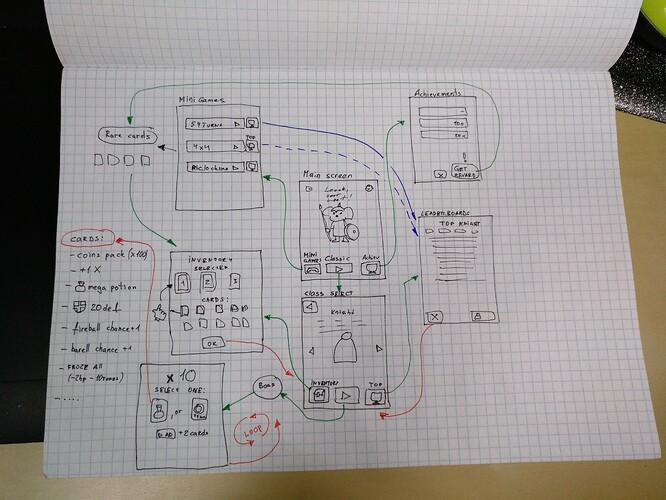 Mini Games
54 Turns
TOP
4x4
Rare cards
Achievements
GET
REWARD
X
Main screen
MINI
GAMES
Classic
Achiev
LEADERBOARDS
TOP KNIGHT
X
CLASS SELECT
Knight
INVENTORY
TOP
INVENTORY
SELECTED
1 2 3
CARDS:
OK
CARDS:
- coins pack (x100)
- +1 X
- mega potion
- 20 def
- fireball chance+1
- barell chance +1
- FROZE ALL
(-2hp - 10 turns)
- .....
x 10
SELECT ONE:
, or
+2 cards
BOARD
LOOP